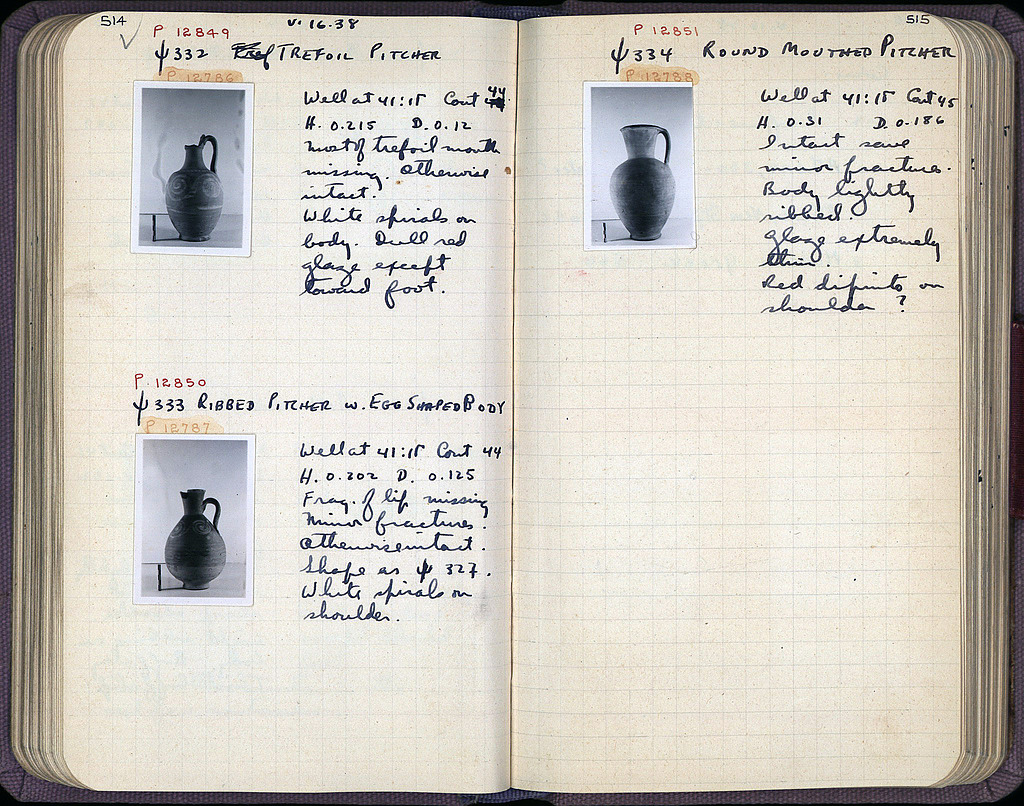 514
v. 16.38
P 12849
ψ 332 TREFOIL PITCHER
P 12786
Well at 41:15 Cont 44
H. 0.215 D. 0.12
Most of trefoil mouth
missing. Otherwise
intact.
White spirals on
body. Dull red
glaze except
toward foot.
P. 12850
ψ 333 RIBBED PITCHER W. EGG SHAPED BODY
P 12787
Well at 41:15 Cont 44
H. 0.202 D. 0.125
Frag. of lip missing
Minor fractures.
Otherwise intact.
Shape as ψ 327.
White spirals on
shoulder.
515
P 12851
ψ 334 ROUND MOUTHED PITCHER
P 12788
Well at 41:15 Cont 45
H. 0.31 D. 0.186
Intact save
minor fractures.
Body lightly
ribbed.
Glaze extremely
thin.
Red dipinto on
shoulder ?